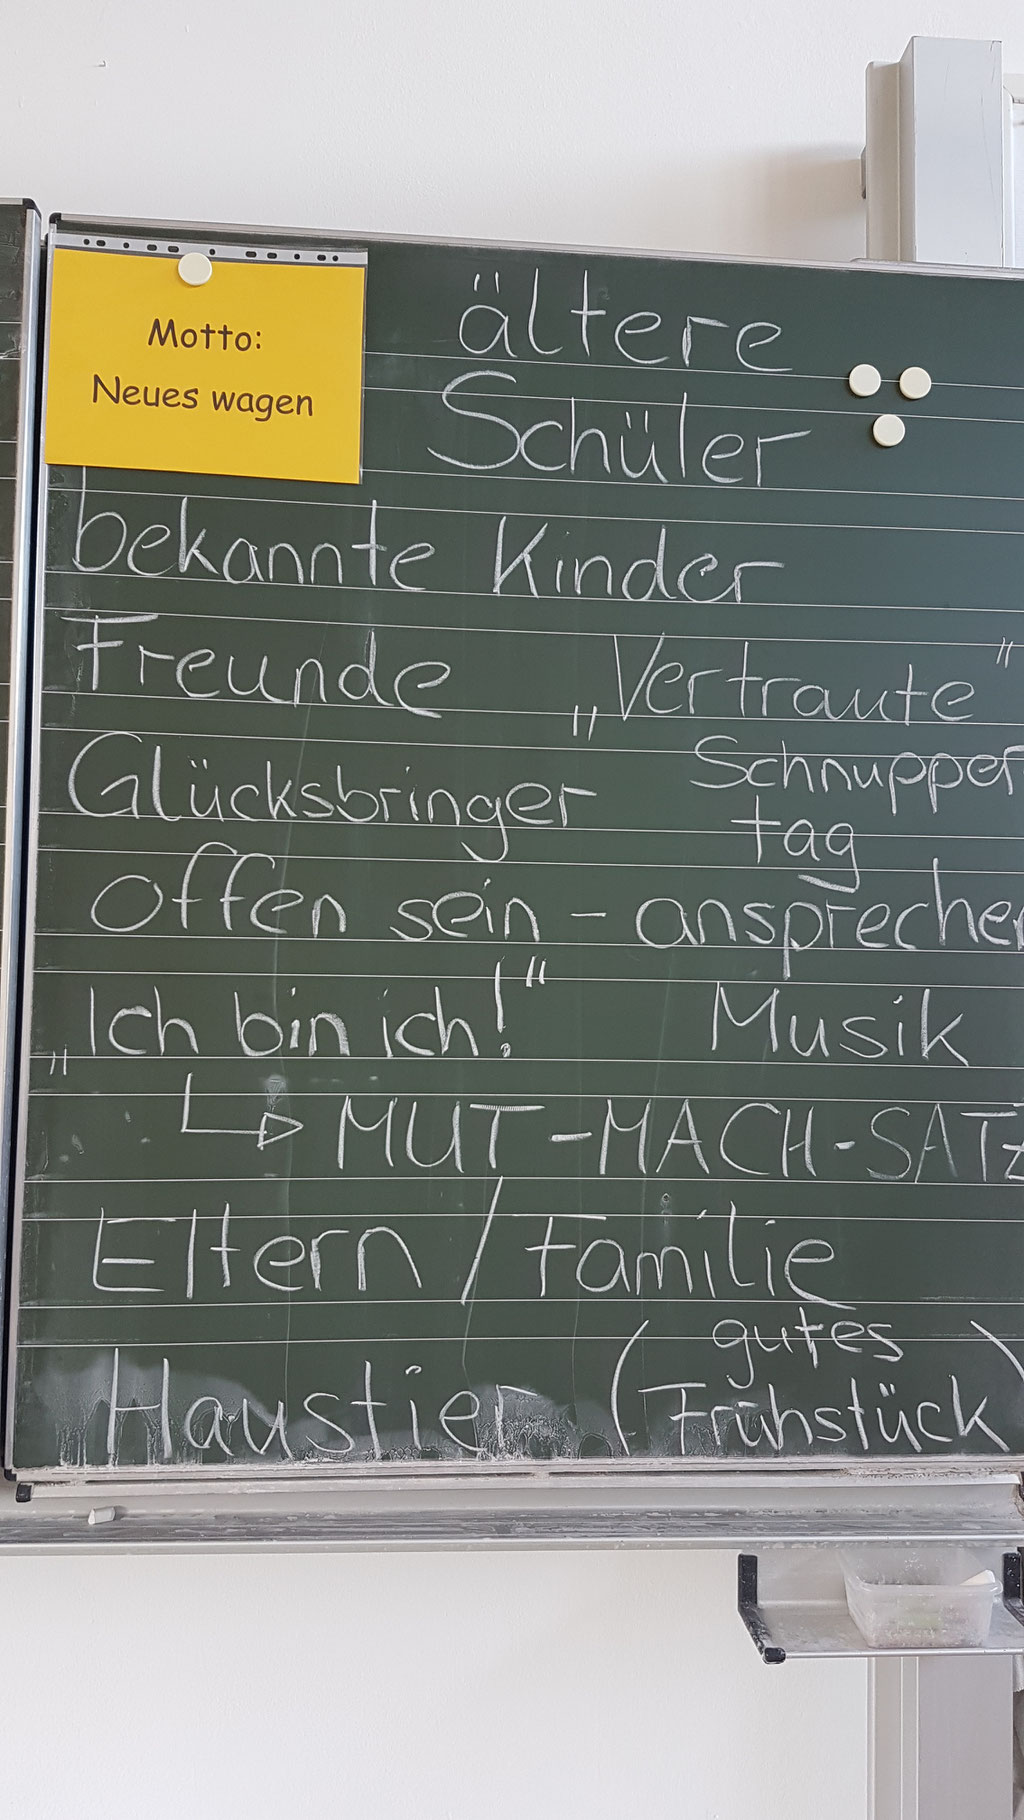 Motto:
Neues wagen
ältere
Schüler
bekannte Kinder
Freunde „Vertraute"
Glücksbringer Schnupper
tag
offen sein - ansprechen
„Ich bin ich!" Musik
↳ MUT-MACH-SATZ
Eltern / Familie
Haustier (gutes
Frühstück)